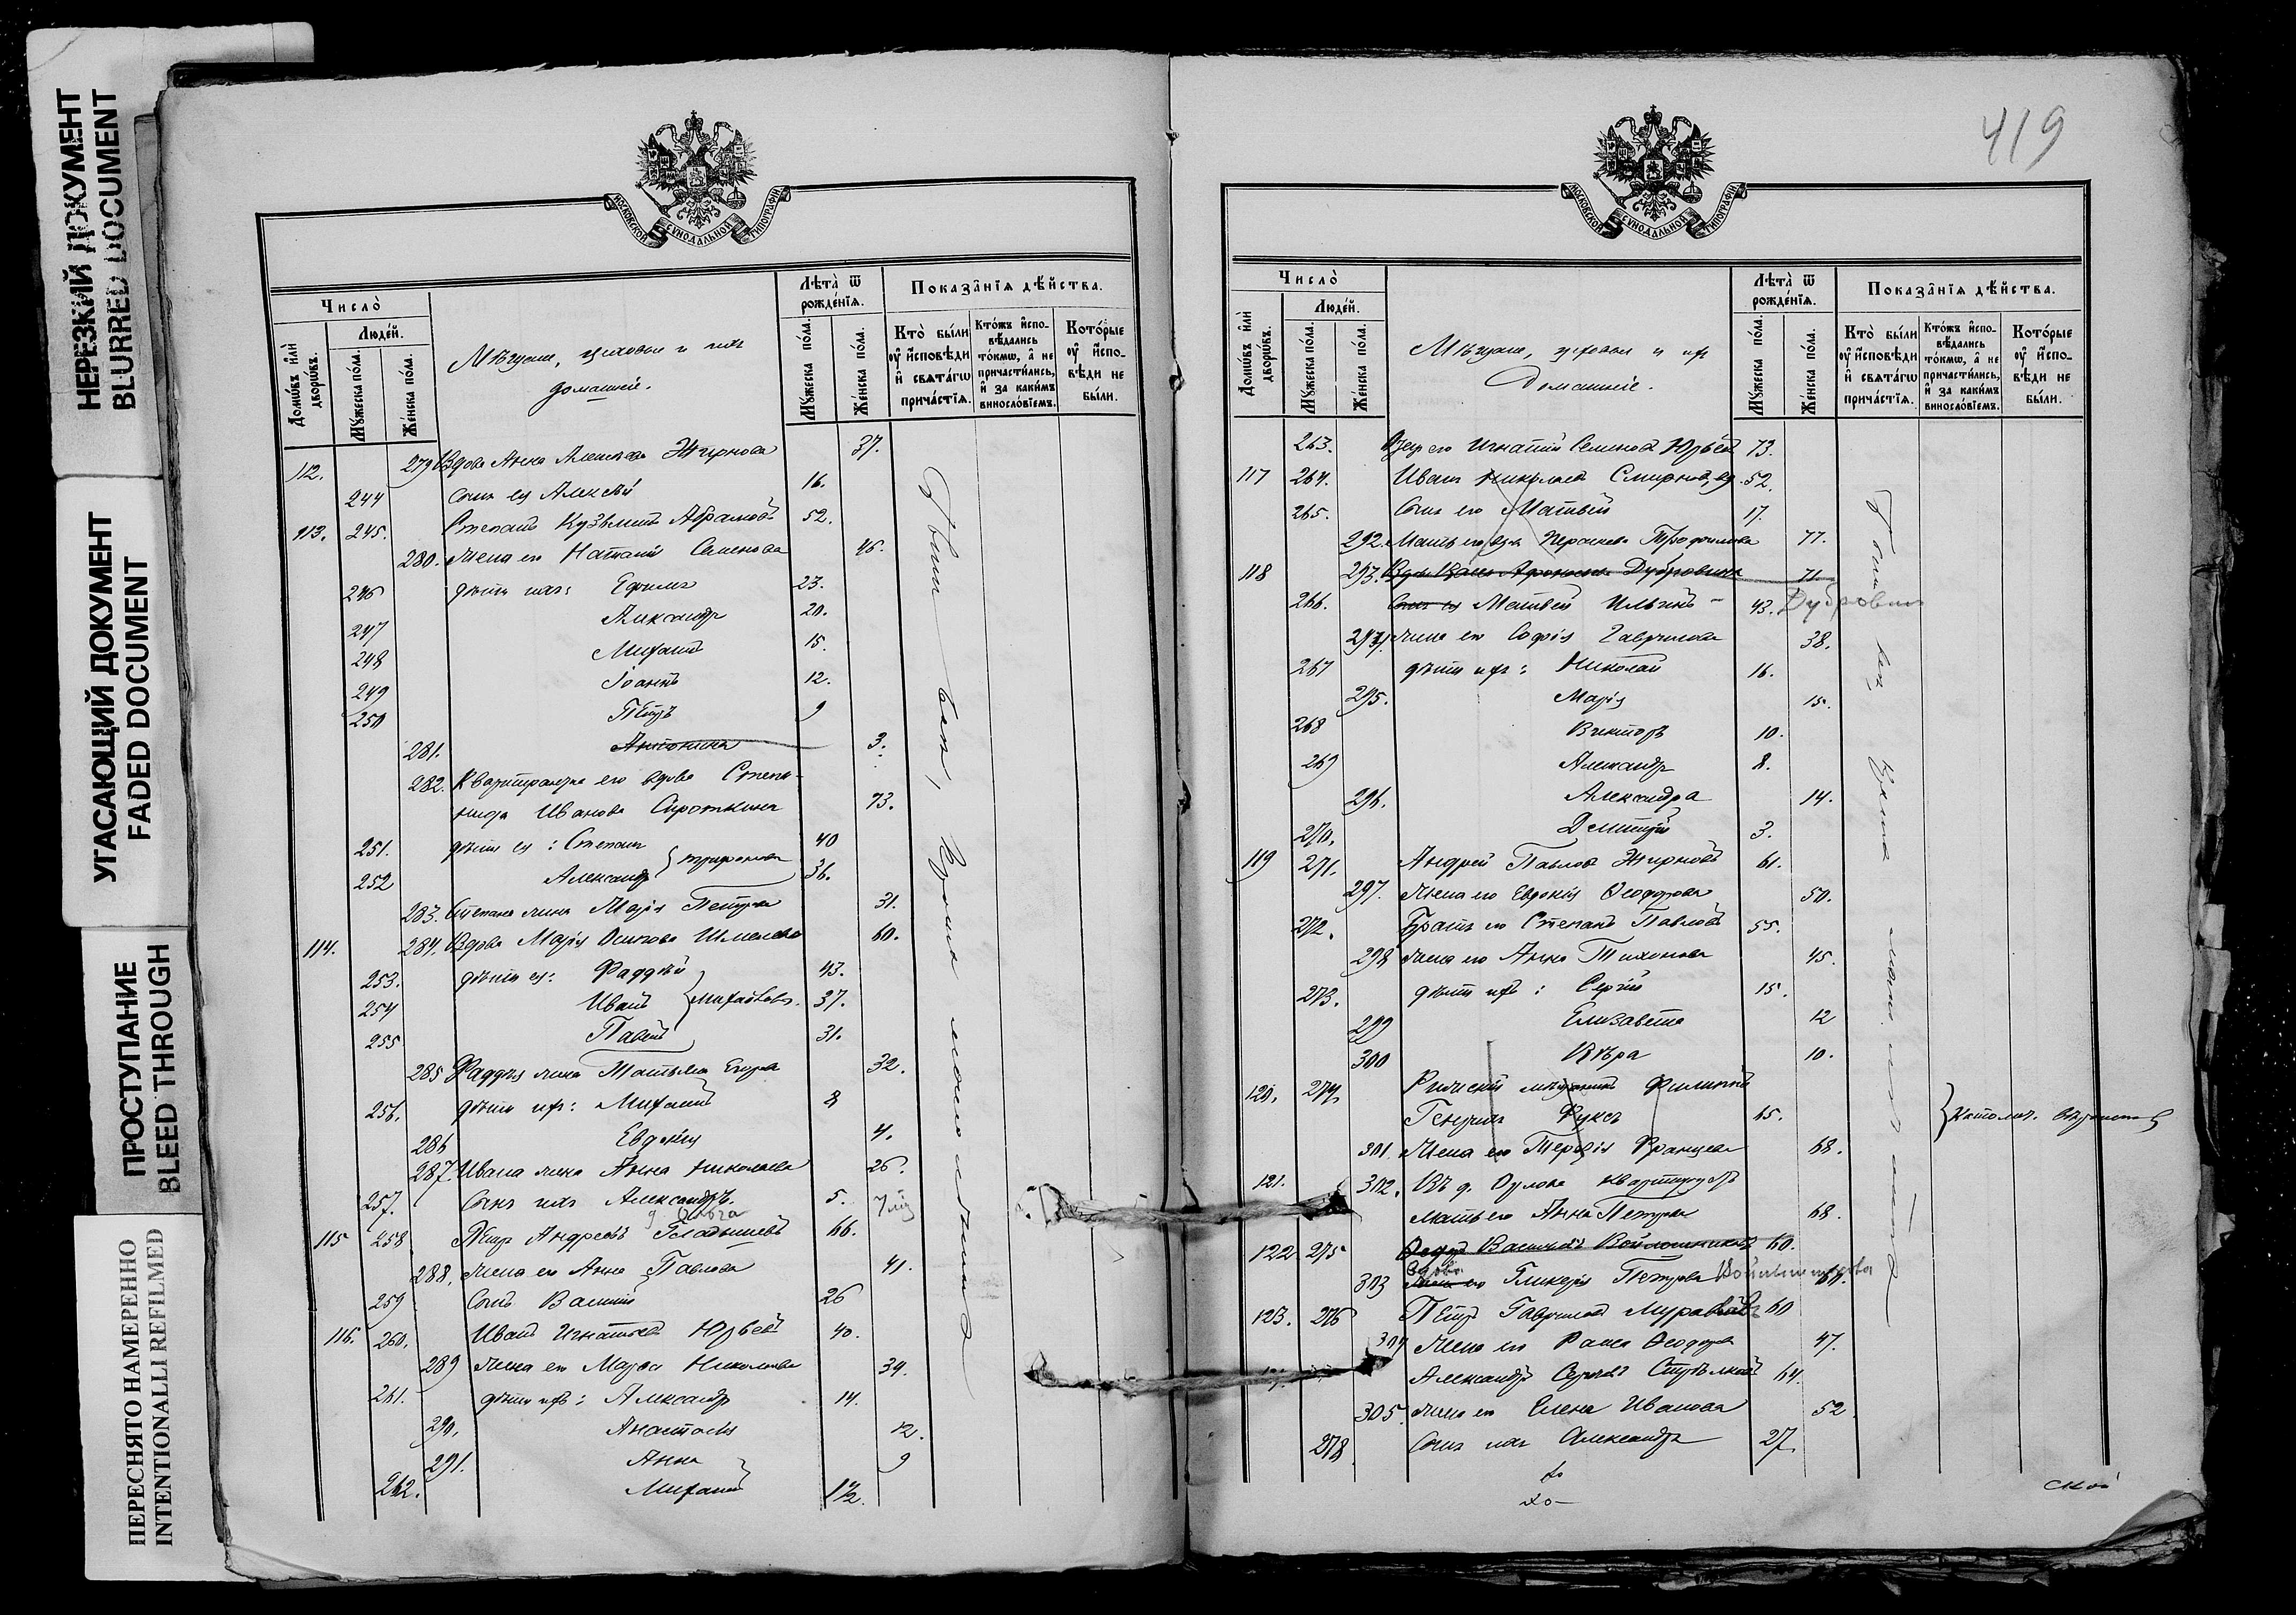 НЕРЕЗКИЙ ДОКУМЕНТ
BLURRED DOCUMENT
УГАСАЮЩИЙ ДОКУМЕНТ
FADED DOCUMENT
ПРОСТУПАНИЕ
BLEED THROUGH
ПЕРЕСНЯТО НАМЕРЕННО
INTENTIONALLI REFILMED
МОСКОВСКОЙ СѴНОДАЛЬНОЙ ТИПОГРАФІИ
Число̀
Люде́й.
Домѡ́въ и҆лѝ дворѡ́въ.
Мꙋ́жеска по́ла.
Же́нска по́ла.
Мѣщане, цеховые и ихъ
домашніе.
Лѣта̀ ѿ рожде́нїѧ.
Мꙋ́жеска по́ла.
Же́нска по́ла.
Показа̑нїѧ дѣ́йства.
Кто̀ бы́ли ᲂу҆ и҆́сповѣди и҆ свѧта́гѡ прича́стїѧ.
Кто́жъ и҆сповѣ́дались то́кмѡ, а҆ не причасти́лись, и҆ за каки́мъ винословїемъ.
Кото́рые ᲂу҆ и҆́сповѣди не бы́ли.
112. 279 Вдова Анна Алексѣева Жирнова 37.
244 Сынъ ея Алексѣй 16.
113. 245. Степанъ Кузьминъ Абрамовъ 52.
280. Жена его Наталія Семенова 46.
246 дѣти ихъ: Ефимъ 23.
247 Александръ 20.
248 Михаилъ 15.
249 Іоаннъ 12.
250 Петръ 9
281. Антонина 3.
282. Квартирантка его вдова Степа-
нида Иванова Сироткина 73.
251. дѣти ея: Степанъ 40
252 Александръ } Трифоновы 36.
283. Степана жена Марія Петрова 31.
114. 284. Вдова Марія Осипова Шмелева 60.
253. дѣти ея: Фаддѣй 43.
254 Иванъ } Михайловы. 37.
255 Павелъ 31.
285 Фаддѣя жена Татьяна Егорова 32.
256. дѣти ихъ: Михаилъ 8
286 Евдокія 4.
287. Ивана жена Анна Николаева 26.
257. Сынъ ихъ Александръ. 5.
д. Ольга
115 258 Петръ Андреевъ Гладышевъ 66.
288. Жена его Анна Павлова 41.
259 Сынъ Василій 26
116. 260. Иванъ Игнатьевъ Юрьевъ 40.
289 Жена его Марѳа Николаева 34.
261. дѣти ихъ: Александръ 14.
290. Анастасія 12.
291. Анна 9
262. Михаилъ 1½.
419
МОСКОВСКОЙ СѴНОДАЛЬНОЙ ТИПОГРАФІИ
Число̀
Люде́й.
Домѡ́въ и҆лѝ дворѡ́въ.
Мꙋ́жеска по́ла.
Же́нска по́ла.
Мѣщане, цеховые и ихъ
домашніе.
Лѣта̀ ѿ рожде́нїѧ.
Мꙋ́жеска по́ла.
Же́нска по́ла.
Показа̑нїѧ дѣ́йства.
Кто̀ бы́ли ᲂу҆ и҆́сповѣди и҆ свѧта́гѡ прича́стїѧ.
Кто́жъ и҆сповѣ́дались то́кмѡ, а҆ не причасти́лись, и҆ за каки́мъ винословїемъ.
Кото́рые ᲂу҆ и҆́сповѣди не бы́ли.
263. Отецъ его Игнатій Семеновъ Юрьевъ 73.
117 264. Иванъ Николаевъ Смирновъ, вд. 52.
265. Сынъ его Матвѣй 17.
292. Мать его вдова Парасковья Трофимова 77.
118 293. Дубровина 71
266. Сынъ ея Матвѣй Ильинъ 43. Дубровинъ
294. Жена его Софія Гаврилова 38.
267 дѣти ихъ: Николай 16.
295. Марія 15.
268 Викторъ 10.
269 Александръ 8.
296. Александра 14.
270. Дмитрій 3.
119 271. Андрей Павловъ Жирновъ 61.
297. Жена его Евдокія Ѳеодорова 50.
272. Братъ его Степанъ Павловъ 55.
298 Жена его Анна Тихонова 45.
273. дѣти ихъ: Сергій 15.
299 Елизавета 12
300 Вѣра 10.
120. 274. Рижскій мѣщанинъ Филиппъ
Фуксъ 65. } Католич. вѣроисп.
301. Жена его Терезія Францева 68.
121. 302. Въ д. Орлова
мать его Анна Петрова 68.
122 275 Василій Войлошниковъ 60.
303 вдова Гликерія Петрова Войлошникова
123. 276 Петръ Гавриловъ Муравьевъ 60
304 Жена его Раиса Ѳеодорова 47.
Александръ Сергѣевъ Стрѣлковъ 64.
305. Жена его Елена Иванова 52
278 Сынъ ихъ Александръ 27.